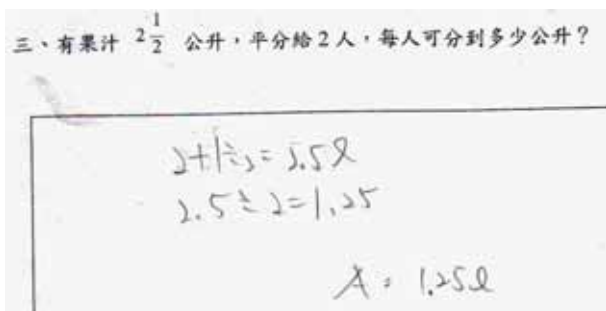 三、有果汁 2 1/2 公升，平分給 2 人，每人可分到多少公升？
2+1÷2=2.5ℓ
2.5÷2=1.25
A：1.25ℓ